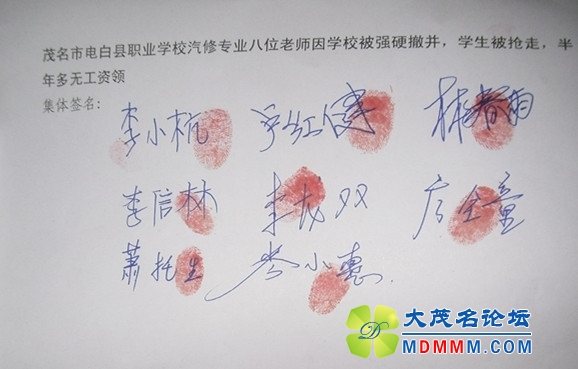 茂名市电白县职业学校汽修专业八位老师因学校被强硬撤并，学生被抢走，半
年多无工资领
集体签名：
李小杭 红健 林春雨
李信林 李龙双 全童
萧托生 岑小惠
大茂名论坛
MDMMM.COM